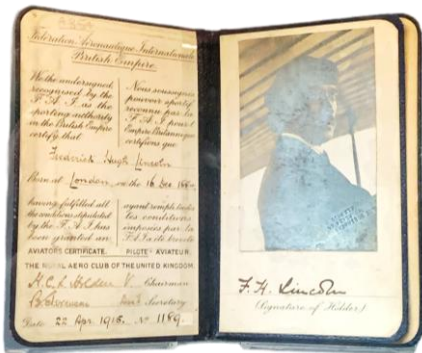 Fédération Aéronautique Internationale
British Empire
We the undersigned
recognised by the
F.A.I. as the
sporting authority
in the British Empire
certify that
Nous soussignés
pouvoir sportif
reconnu par la
F.A.I. pour l'
Empire Britannique
certifions que
Frederick Hugh Lincoln
Born at London on the 16 Dec
having fulfilled all
the conditions stipulated
by the F.A.I. has
been granted an
AVIATOR'S CERTIFICATE.
ayant rempli toutes
les conditions
imposées par la
F.A.I. a été breveté
PILOTE-AVIATEUR.
THE ROYAL AERO CLUB OF THE UNITED KINGDOM.
H.C.L. Holden Chairman
Secretary
Date 22 Apr. 1915. No 1189.
F. H. Lincoln
(Signature of Holder)